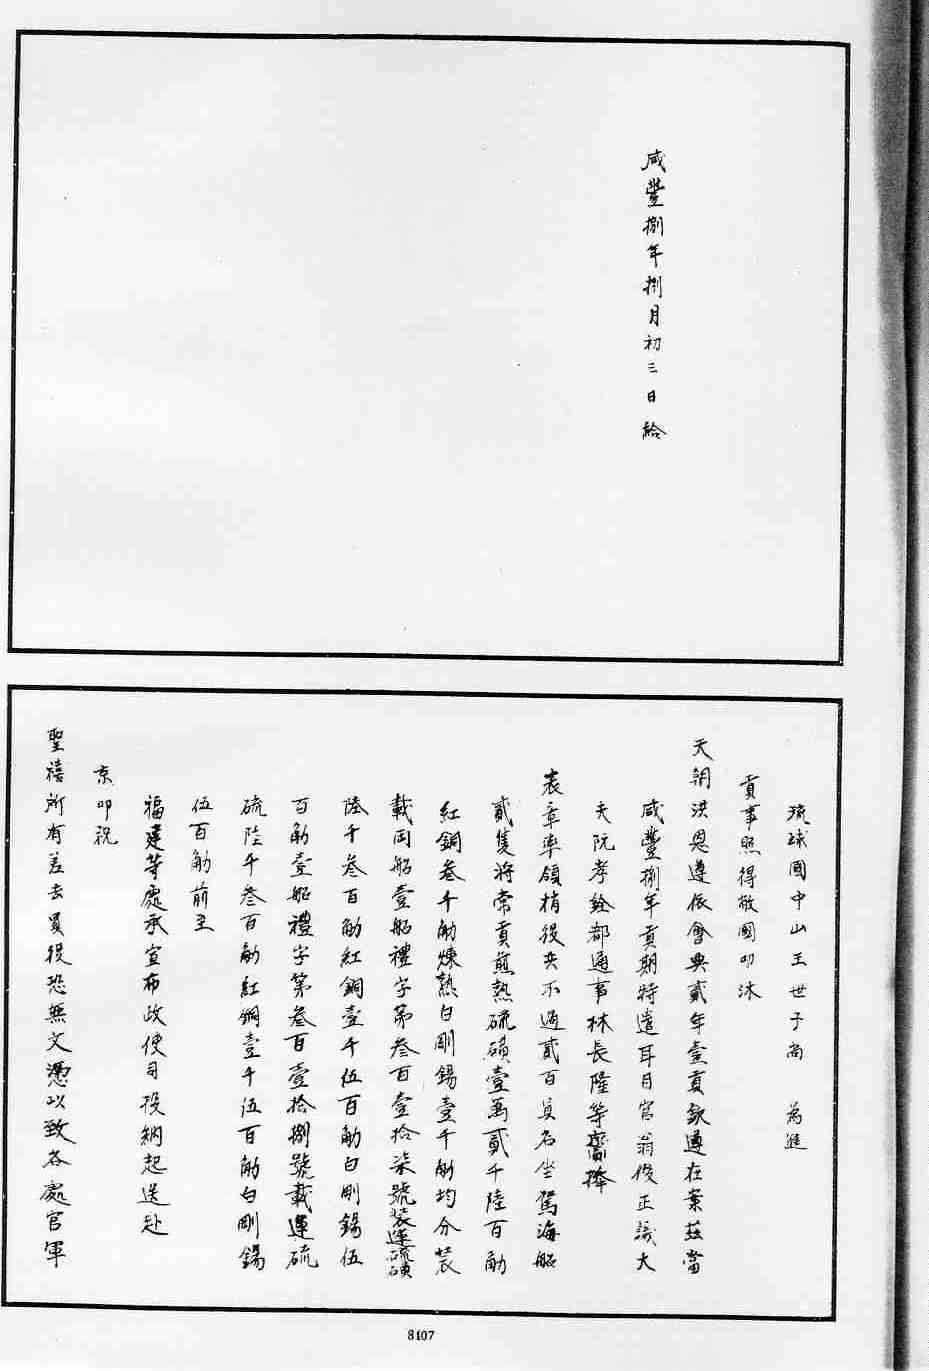 咸豐捌年捌月初三日給
琉球國中山王世子尚 為進
貢事照得敝國叨沐
天朝洪恩遵依會典貳年壹貢欽遵在案茲當
咸豐捌年貢期特遣耳目官翁俊正議大
夫阮孝銓都通事林長隆等齎捧
表章率領梢役共不過貳百員名坐駕海船
貳隻將常貢煎熟硫磺壹萬貳千陸百觔
紅銅叁千觔煉熟白剛錫壹千觔均分裝
載両船壹船禮字第叁百壹拾柒號裝運硫磺
陸千叁百觔紅銅壹千伍百觔白剛錫伍
百觔壹船禮字第叁百壹拾捌號載運硫
硫陸千叁百觔紅銅壹千伍百觔白剛錫
伍百觔前至
福建等處承宣布政使司投納起送赴
京叩祝
聖禧所有差去員役恐無文憑以致各處官軍
8107